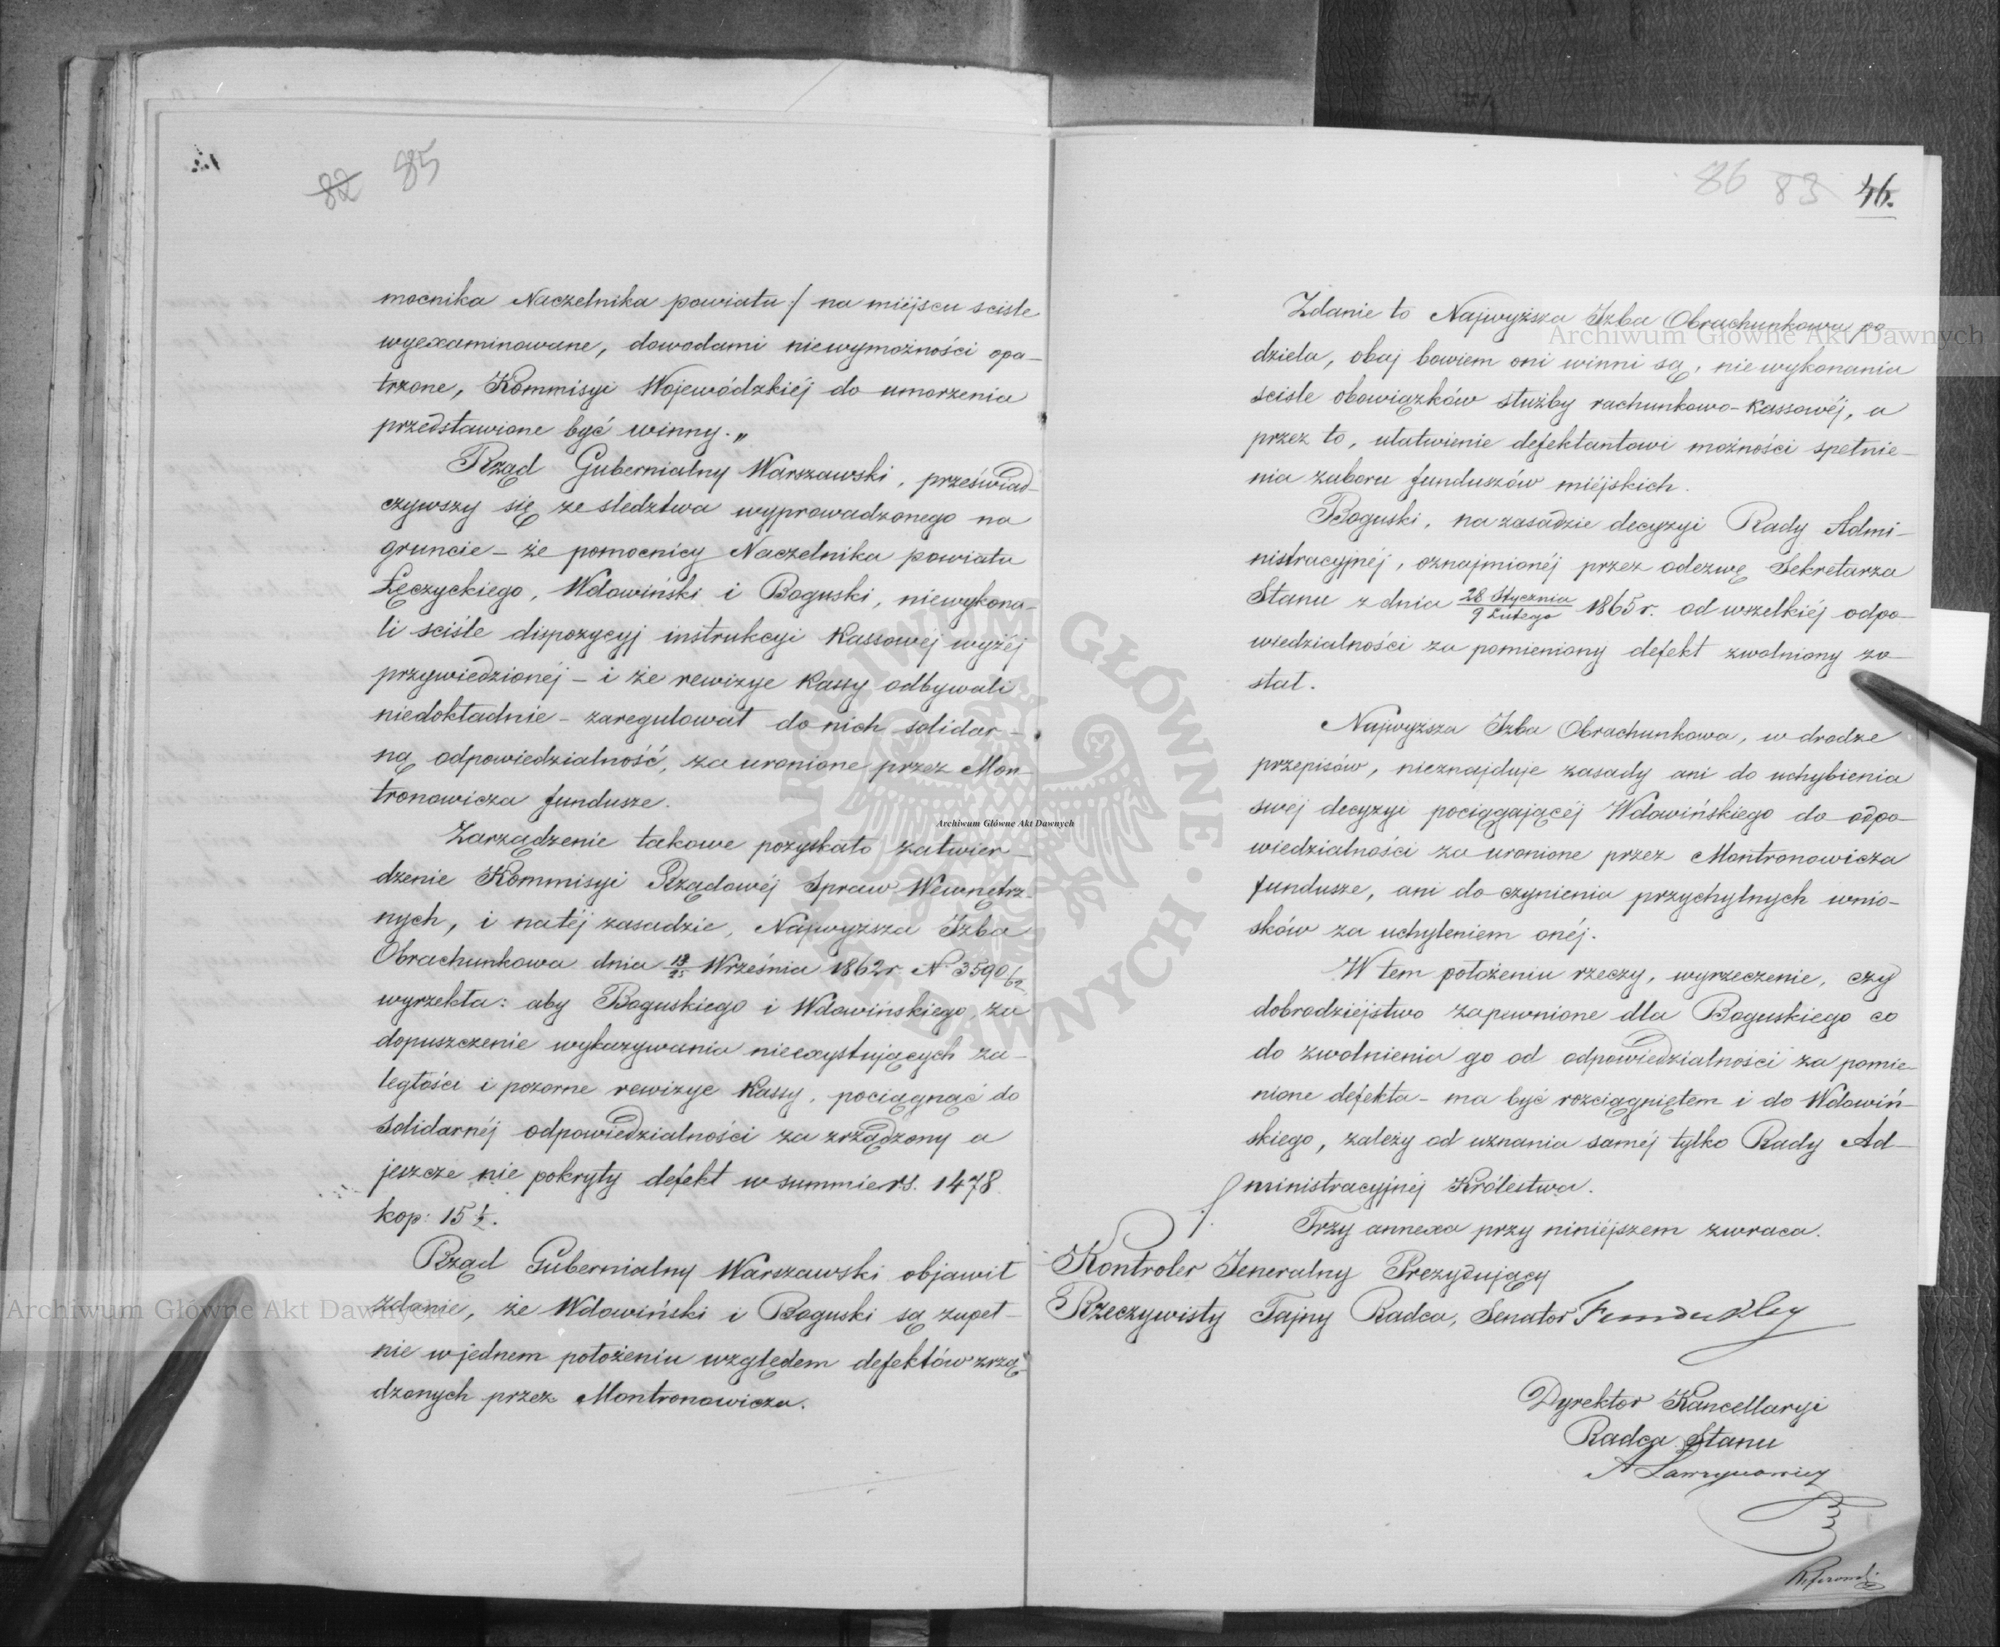 82 85
mocnika Naczelnika powiatu:/ na miejscu sciśle
wyexaminowane, dowodami niewymożności opa-
trzone, Kommisyi Wojewódzkiéj do umorzenia
przedstawione być winny.„
Rząd Gubernialny Warszawski, przeświad-
czywszy się ze śledztwa wyprowadzonego na
gruncie – że pomocnicy Naczelnika powiatu
Łęczyckiego, Wdowiński i Boguski, niewykona-
li sciśle dispozycyj instrukcyi Kassowéj wyżéj
przywiedzionéj – i że rewizye Kassy odbywali
niedokładnie – zaregulował do nich solidar-
ną odpowiedzialność, za uronione przez Mon-
tronowicza fundusze.
Zarządzenie takowe pozyskało zatwier-
dzenie Kommisyi Rządowéj Spraw Wewnętrz-
nych, i natéj zasadzie, Najwyższa Izba
Obrachunkowa dnia 13/25 Września 1862 r. N 3590/62
wyrzekła: aby Boguskiego i Wdowińskiego, za
dopuszczenie wykazywania nieexystujących za-
ległości i pozorne rewizye Kassy, pociągnąć do
solidarnéj odpowiedzialności za zrządzony a
jeszcze nie pokryty defekt w summie rs. 1478
kop: 15 1/2.
Rząd Gubernialny Warszawski objawił
zdanie, że Wdowiński i Boguski są zupeł-
nie w jednem położeniu względem defektów zrzą-
dzonych przez Montronowicza.
86 83 46.
Zdanie to Najwyższa Izba Obrachunkowa po-
dziela, obaj bowiem oni winni są, niewykonania
sciśle obowiązków służby rachunkowo-kassowéj, a
przez to, ułatwienie defektantowi możności spełnie-
nia zaboru funduszów miéjskich.
Boguski, na zasadzie decyzyi Rady Admi-
nistracyjnéj, oznajmionéj przez odezwę Sekretarza
Stanu z dnia 28 Stycznia/9 Lutego 1865 r. od wszelkiéj odpo-
wiedzialności za pomieniony defekt zwolniony zo-
stał.
Najwyższa Izba Obrachunkowa, w drodze
przepisów, nieznajduje zasady ani do uchybienia
swéj decyzyi pociągającéj Wdowińskiego do odpo-
wiedzialności za uronione przez Montronowicza
fundusze, ani do czynienia przychylnych wnio-
sków za uchyleniem onéj.
W tem położeniu rzeczy, wyrzeczenie, czy
dobrodziéjstwo zapewnione dla Boguskiego co
do zwolnienia go od odpowiedzialności za pomie-
nione defekta – ma być rozciągniętem i do Wdowiń-
skiego, zależy od uznania saméj tylko Rady Ad-
ministracyjnéj Królestwa.
Trzy annexa przy niniéjszem zwraca.
Kontroler Jeneralny Prezydujący
Rzeczywisty Tajny Radca, Senator Fundukley
Dyrektor Kancellaryi
Radca Stanu
Archiwum Główne Akt Dawnych
Archiwum Główne Akt Dawnych
Archiwum Główne Akt Dawnych
ARCHIWUM GŁÓWNE AKT DAWNYCH